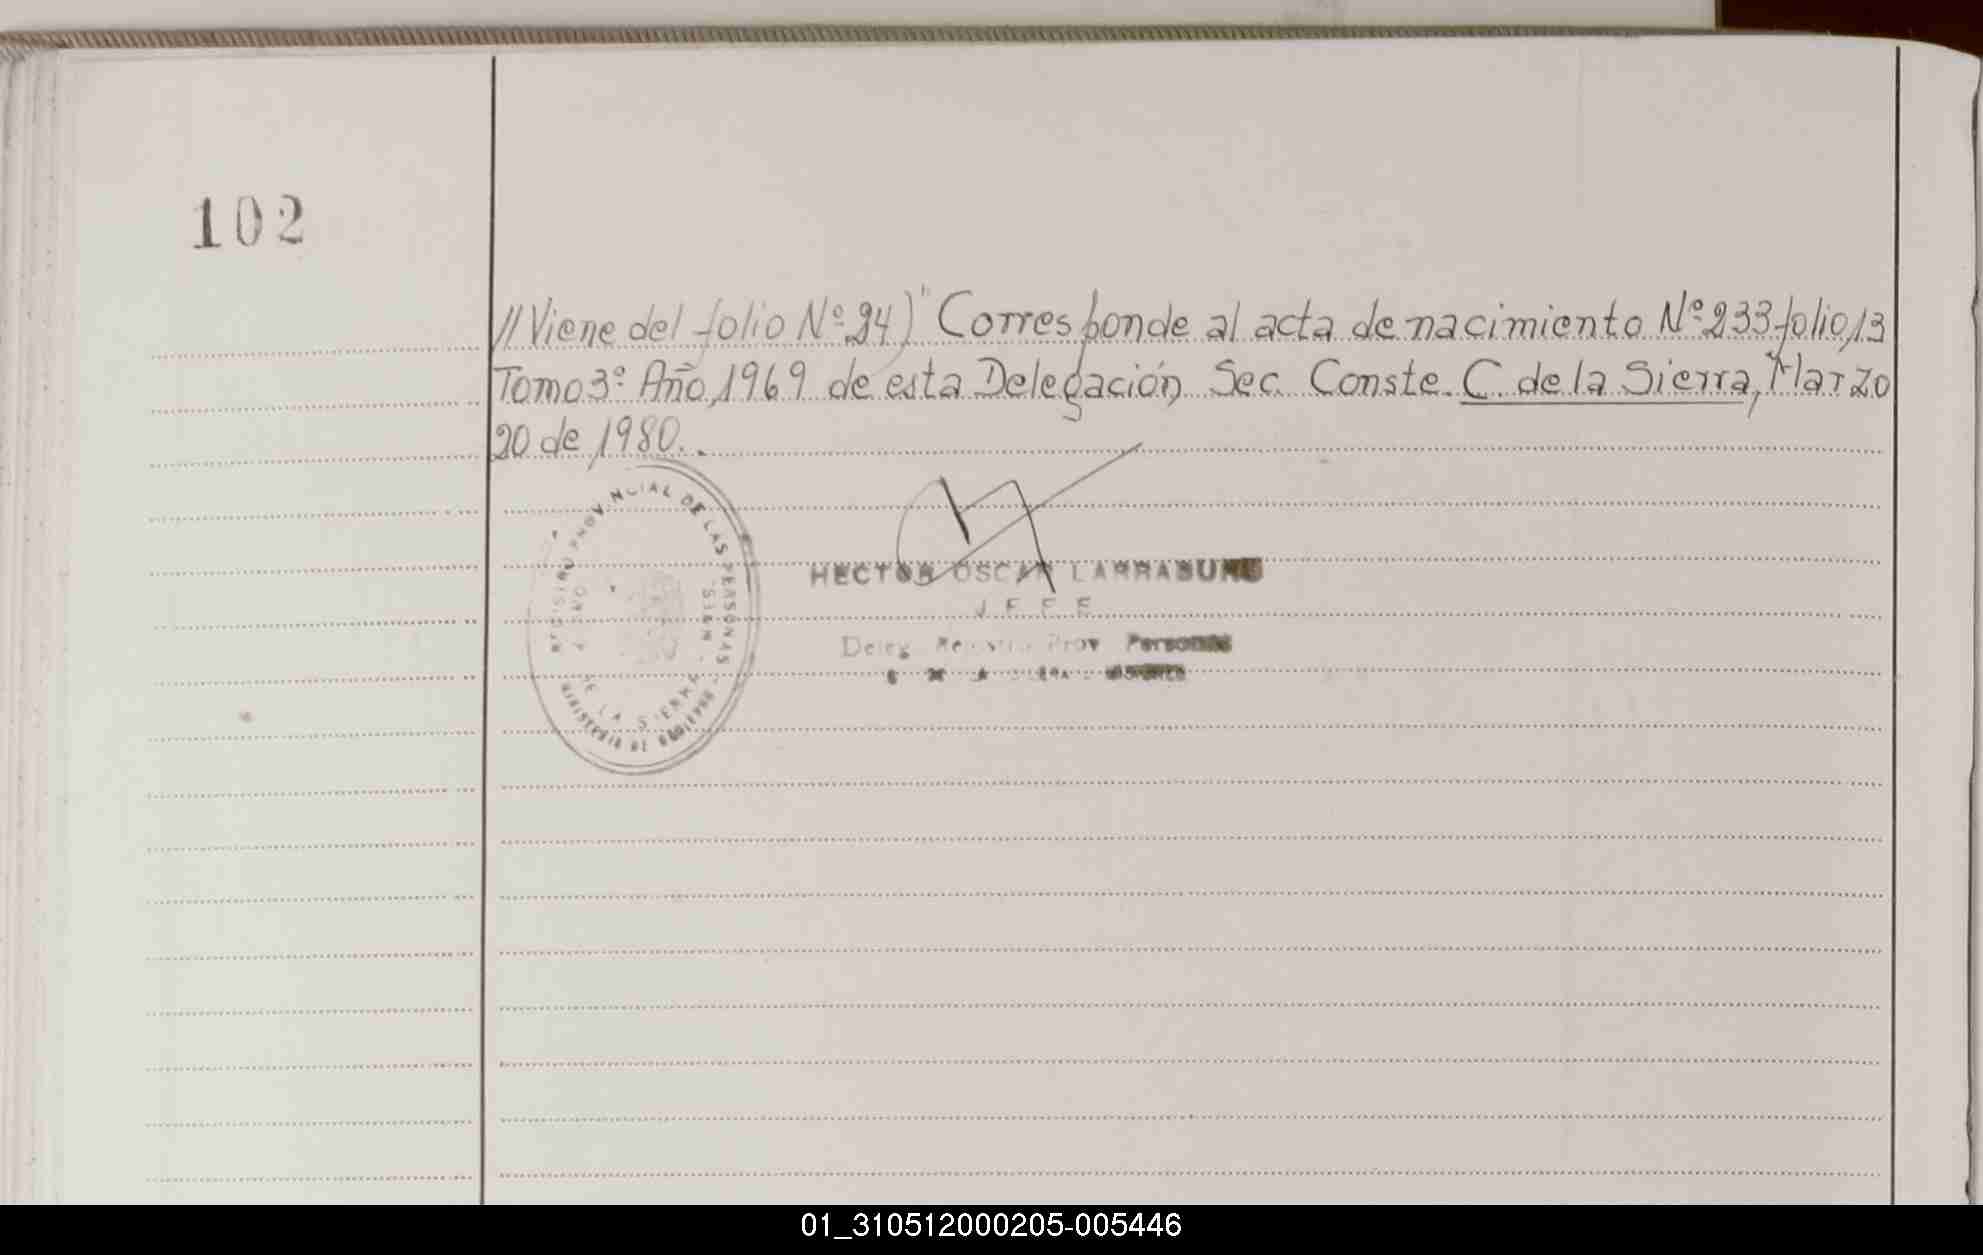 102
//Viene del folio Nº 94)" Corresponde al acta de nacimiento Nº 233 folio 13
Tomo 3º Año 1969 de esta Delegación Sec. Conste. C. de la Sierra, Marzo
20 de 1980..
REGISTRO PROVINCIAL DE LAS PERSONAS
DE LA SIERRA
MINISTERIO DE GOBIERNO
HECTOR OSCAR LARRABURU
JEFE
Deleg. Registro Prov Personas
01_310512000205-005446